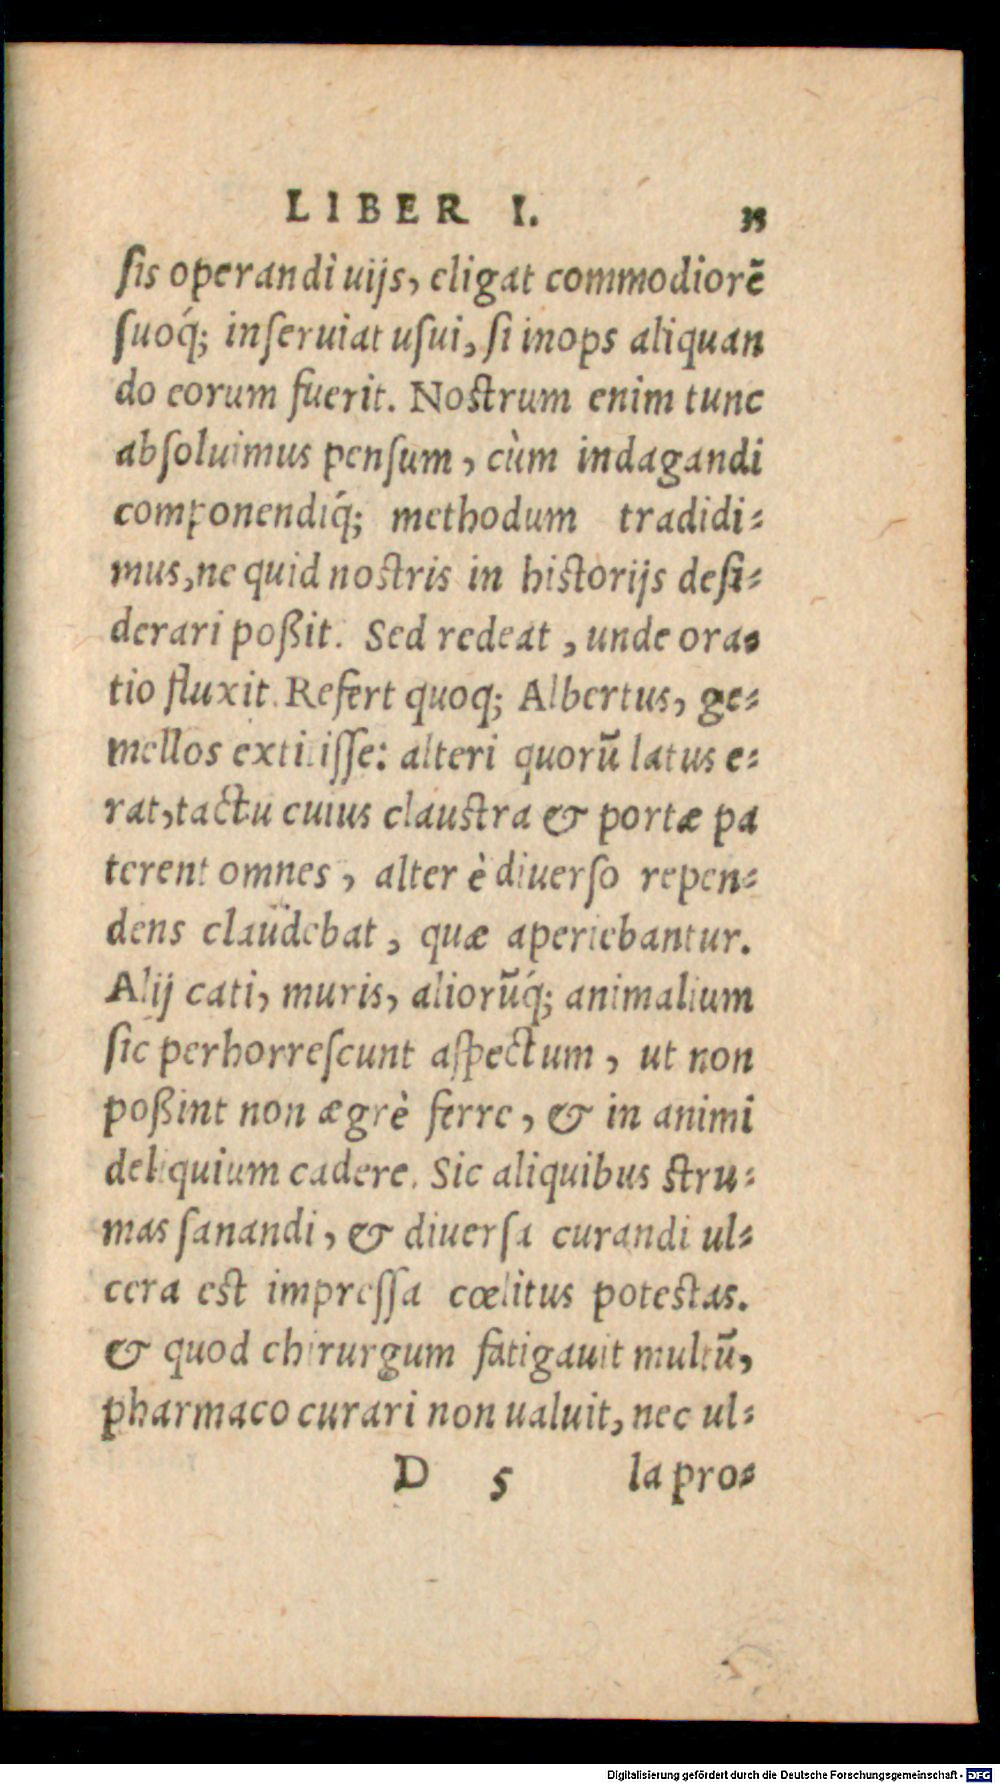 LIBER I.
ſis operandi uijs, eligat commodiorē
ſuoq́; inſeruiat uſui, ſi inops aliquan
do eorum fuerit. Noſtrum enim tunc
abſoluimus penſum, cùm indagandi
componendiq́; methodum tradidi-
mus, ne quid noſtris in hiſtorijs deſi-
derari poßit. Sed redeat, unde ora-
tio fluxit. Refert quoq; Albertus, ge-
mellos extitiſſe: alteri quorū latus e-
rat, tactu cuius clauſtra & portæ pa
terent omnes, alter è diuerſo repen-
dens claudebat, quæ aperiebantur.
Alij cati, muris, aliorūq́; animalium
ſic perhorreſcunt aſpectum, ut non
poßint non ægrè ferre, & in animi
deliquium cadere. Sic aliquibus ſtru-
mas ſanandi, & diuerſa curandi ul-
cera eſt impreſſa cœlitus poteſtas.
& quod chirurgum fatigauit multū,
pharmaco curari non ualuit, nec ul-
D 5 la pro-
Digitalisierung gefördert durch die Deutsche Forschungsgemeinschaft - DFG